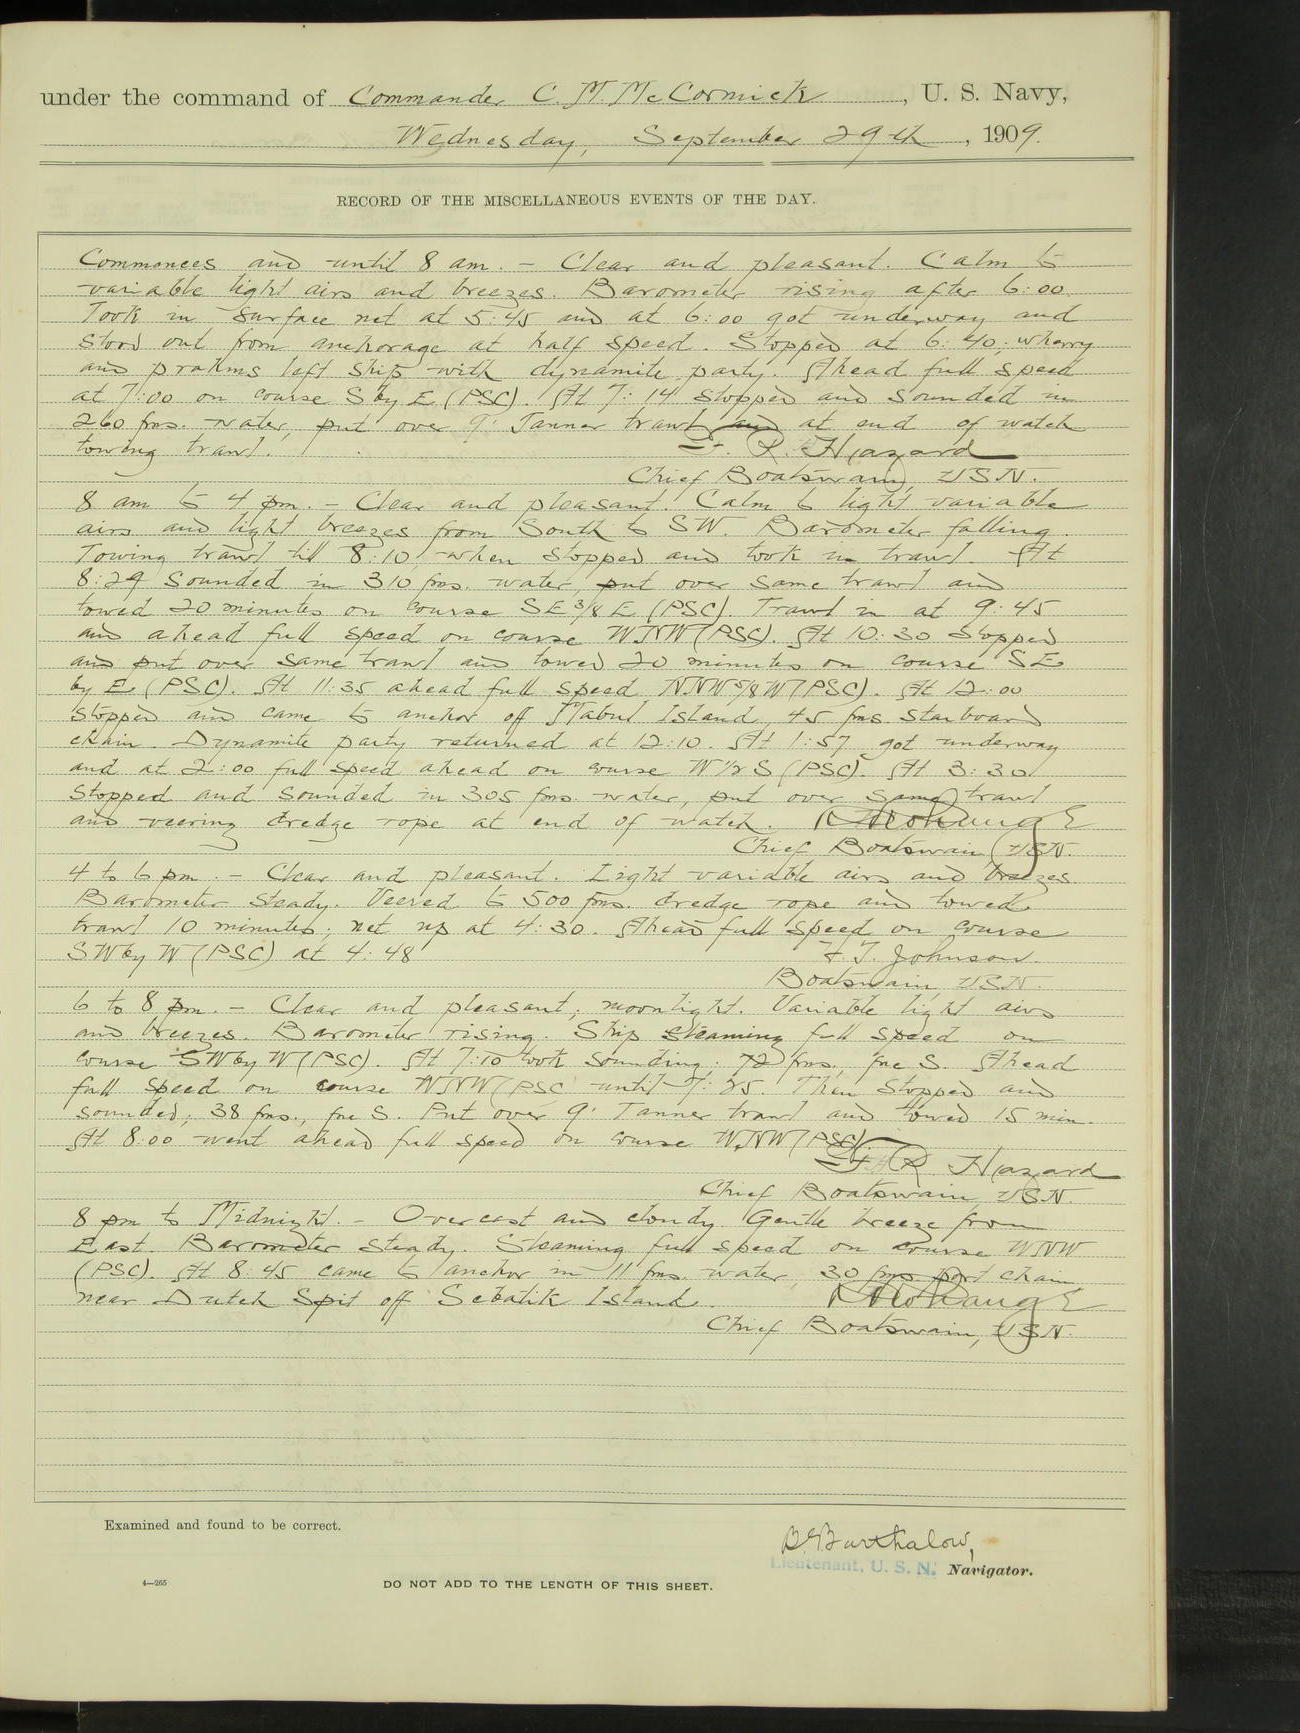 under the command of Commander C. M. McCormick, U. S. Navy,
Wednesday, September 29th, 1909.
RECORD OF THE MISCELLANEOUS EVENTS OF THE DAY.
Commences and until 8 am. - Clear and pleasant. Calm to
variable light airs and breezes. Barometer rising after 6:00.
Took in surface net at 5:45 and at 6:00 got underway and
stood out from anchorage at half speed. Stopped at 6:40; wherry
and prahms left ship with dynamite party. Ahead full speed
at 7:00 on course S by E (PSC). At 7:14 stopped and sounded in
260 fms. water, put over 9' Tanner trawl and at end of watch
towing trawl. F. R. Hazard
Chief Boatswain, USN.
8 am to 4 pm. - Clear and pleasant. Calm to light variable
airs and light breezes from South to SW. Barometer falling.
Towing trawl till 8:10, when stopped and took in trawl. At
8:29 sounded in 310 fms. water, put over same trawl and
towed 20 minutes on course SE 3/8 E (PSC). Trawl in at 9:45
and ahead full speed on course WNW (PSC). At 10:30 stopped
and put over same trawl and towed 20 minutes on course SE
by E (PSC). At 11:35 ahead full speed NNW 5/8 W (PSC). At 12:00
stopped and came to anchor off Mabul Island, 45 fms. starboard
chain. Dynamite party returned at 12:10. At 1:57 got underway
and at 2:00 full speed ahead on course W 1/2 S (PSC). At 3:30
stopped and sounded in 305 fms. water, put over same trawl
and veering dredge rope at end of watch.
Chief Boatswain, USN.
4 to 6 pm. - Clear and pleasant. Light variable airs and breezes
Barometer steady. Veered to 500 fms. dredge rope and towed
trawl 10 minutes; net up at 4:30. Ahead full speed on course
SW by W (PSC) at 4:48 F. T. Johnson.
Boatswain USN.
6 to 8 pm. - Clear and pleasant; moonlight. Variable light airs
and breezes. Barometer rising. Ship steaming full speed on
course SW by W (PSC). At 7:10 took sounding: 72 fms., fne S. Ahead
full speed on course WNW (PSC until 7:25. Then stopped and
sounded; 38 fms., fne S. Put over 9' Tanner trawl and towed 15 min.
At 8:00 went ahead full speed on course WNW (PSC).
F. R. Hazard
Chief Boatswain USN.
8 pm to Midnight. - Overcast and cloudy. Gentle breeze from
East. Barometer steady. Steaming full speed on course WNW
(PSC). At 8:45 came to anchor in 11 fms. water, 30 fms. port chain
near Dutch Spit off Sebatik Island.
Chief Boatswain, USN.
Examined and found to be correct.
Barthalow,
Lieutenant, U. S. N. Navigator.
4—265
DO NOT ADD TO THE LENGTH OF THIS SHEET.